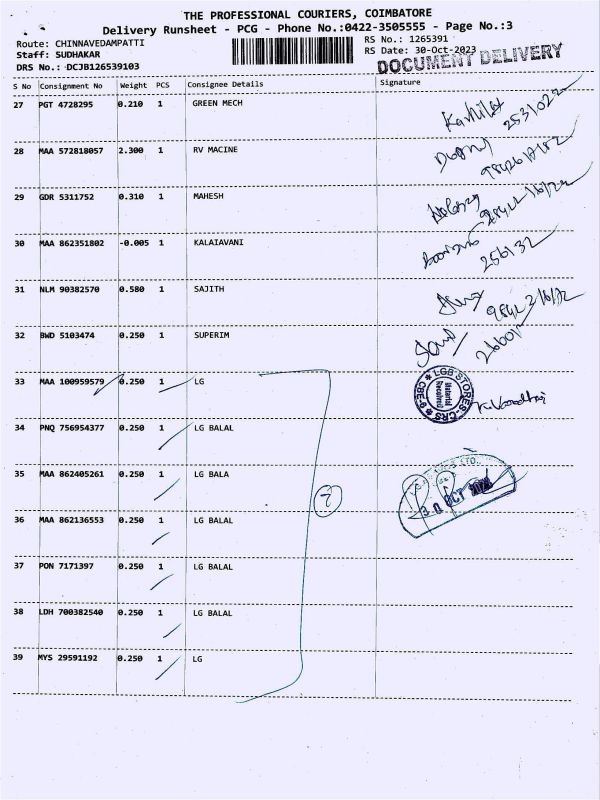 THE PROFESSIONAL COURIERS, COIMBATORE
Delivery Runsheet - PCG - Phone No.:0422-3505555 - Page No.:3
Route: CHINNAVEDAMPATTI
Staff: SUDHAKAR
DRS No.: DCJB126539103
RS No.: 1265391
RS Date: 30-Oct-2023
DOCUMENT DELIVERY
S No Consignment No Weight PCS Consignee Details Signature
27 PGT 4728295 0.210 1 GREEN MECH
28 MAA 572818057 2.300 1 RV MACINE
29 GDR 5311752 0.310 1 MAHESH
30 MAA 862351802 -0.005 1 KALAIAVANI
256132
31 NLM 90382570 0.580 1 SAJITH
32 BWD 5103474 0.250 1 SUPERIM
33 MAA 100959579 0.250 1 LG
LGB STORES-CRS
CBE-6
Material Received
34 PNQ 756954377 0.250 1 LG BALAL
35 MAA 862405261 0.250 1 LG BALA
7
30 OCT
36 MAA 862136553 0.250 1 LG BALAL
37 PON 7171397 0.250 1 LG BALAL
38 LDH 700382540 0.250 1 LG BALAL
39 MYS 29591192 0.250 1 LG